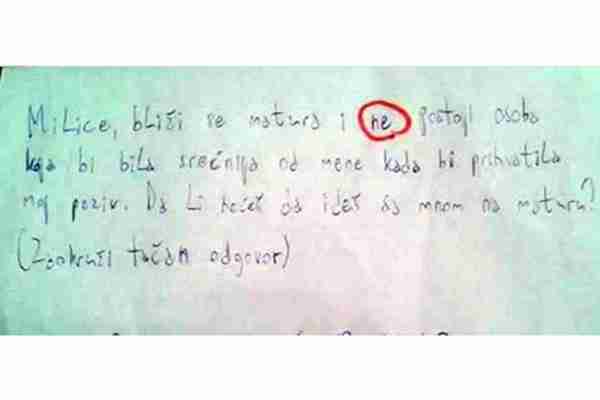 Milice, bliži se matura i ne postoji osoba
koja bi bila srećnija od mene kada bi prihvatila
moj poziv. Da li hoćeš da ideš sa mnom na maturu?
(Zaokruži tačan odgovor)